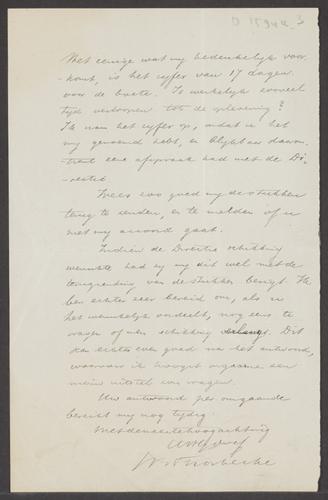 Het eenige wat my bedenkelijk voor-
-komt, is het cyfer van 17 dagen
voor de boete. Is werkelijk zooveel
tijd verloopen tot de oplevering?
Ik nam het cyfer op, omdat u het
my genoemd hebt, en blijkbaar daarom-
trent eene afspraak had met de Di-
-rectie.
Wees zoo goed my de stukken
terug te zenden, en te melden of u
met my accoord gaat.
Indien de Directie schikking
wenschte had zy my dit wel met de
terugzending van de stukken bericht. Ik
ben echter zeer bereid om, als u
het wenschelijk oordeelt, nog eens te
vragen of men schikking verlangt. Dit
kan echter even goed na het antwoord,
waarvoor ik hoogst ongaarne een
nieuw uitstel zou vragen.
Uw antwoord per omgaande
bereikt my nog tydig.
Met de meeste hoogachting